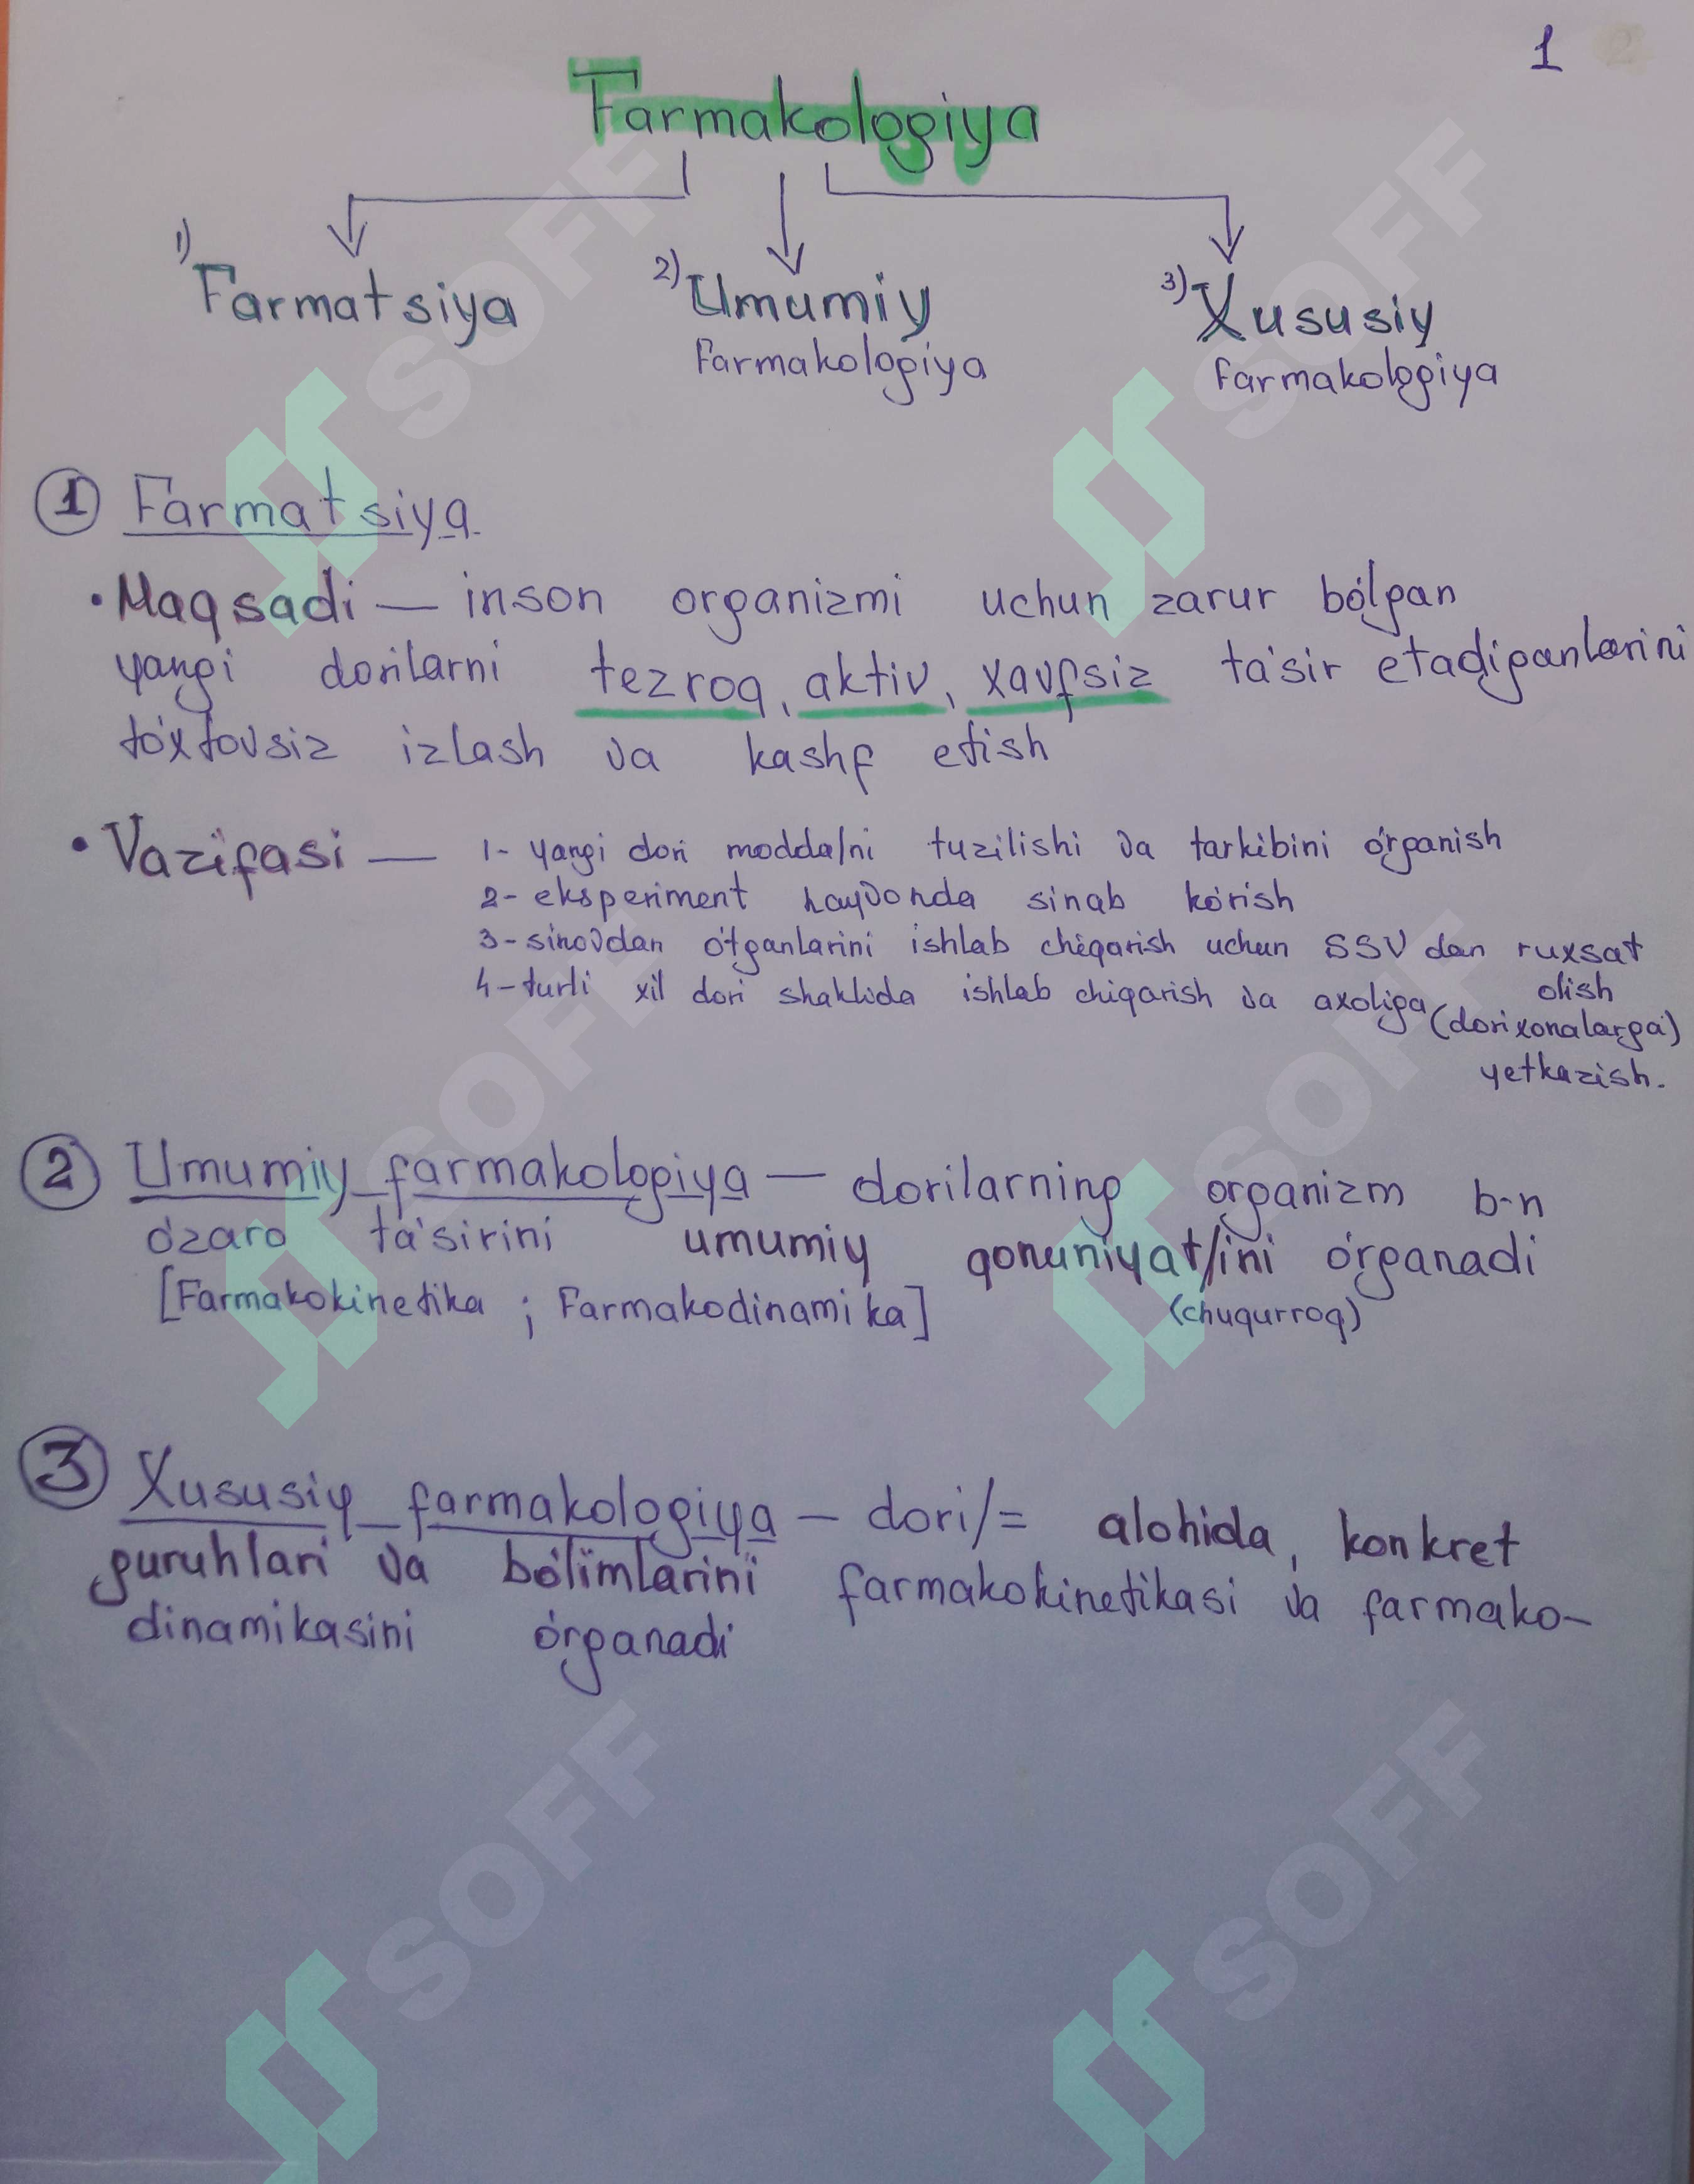 1
Farmakologiya
1) Farmatsiya
2) Umumiy
farmakologiya
3) Xususiy
farmakologiya
1 Farmatsiya
• Maqsadi — inson organizmi uchun zarur bo'lgan
yangi dorilarni tezroq, aktiv, xavfsiz ta'sir etadiganlarini
to'xtovsiz izlash va kashf etish
• Vazifasi — 1- yangi dori modda/ni tuzilishi va tarkibini o'rganish
2- eksperiment hayvonda sinab ko'rish
3- sinovdan o'tganlarini ishlab chiqarish uchun SSV dan ruxsat
olish
4- turli xil dori shaklida ishlab chiqarish va axoliga (dorixonalarga)
yetkazish.
2 Umumiy farmakologiya — dorilarning organizm b-n
o'zaro ta'sirini umumiy qonuniyat/ini o'rganadi
[Farmakokinetika ; Farmakodinamika] (chuqurroq)
3 Xususiy farmakologiya — dori/= alohida, konkret
guruhlari va bo'limlarini farmakokinetikasi va farmako-
dinamikasini o'rganadi
SOFF
SOFF
SOFF
SOFF
SOFF
SOFF